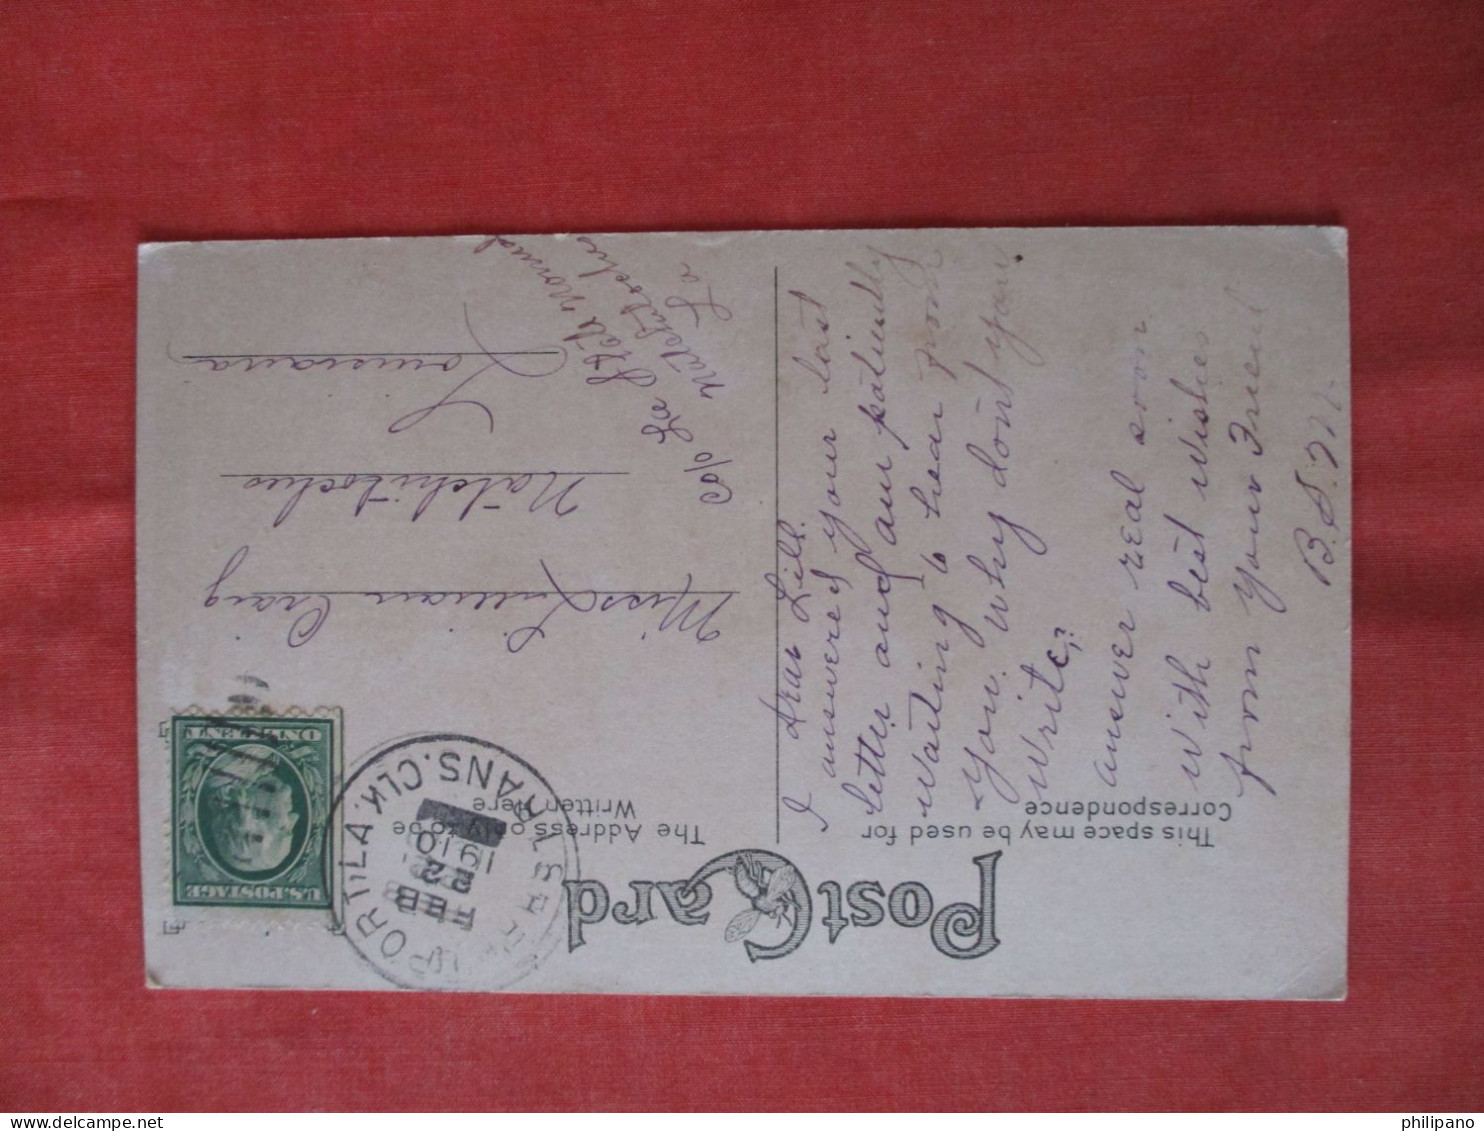 Post Card
This space may be used for
Correspondence
The Address only to be
Written Here
U.S. POSTAGE
TRANS. CLK.
LA.
FEB
2
1910
Dear Lill.
I answered your last
letter and am patiently
waiting to hear from
you. Why don't you
write?
answer real soon
with best wishes
from your Friend
B.S.
Miss Lillian Craig
Natchitoches
Louisiana
c/o La State Normal
Natchitoches
La
philipano
delcampe.net